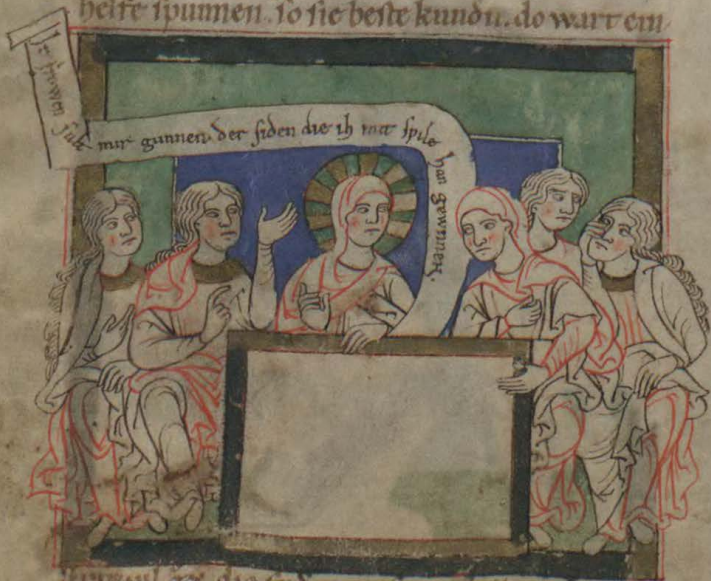 helfe spunnen. so sie beste kundu. do wart ein
Ir frowen sult mir gunnen der siden die ih mit spile han gewunnen.